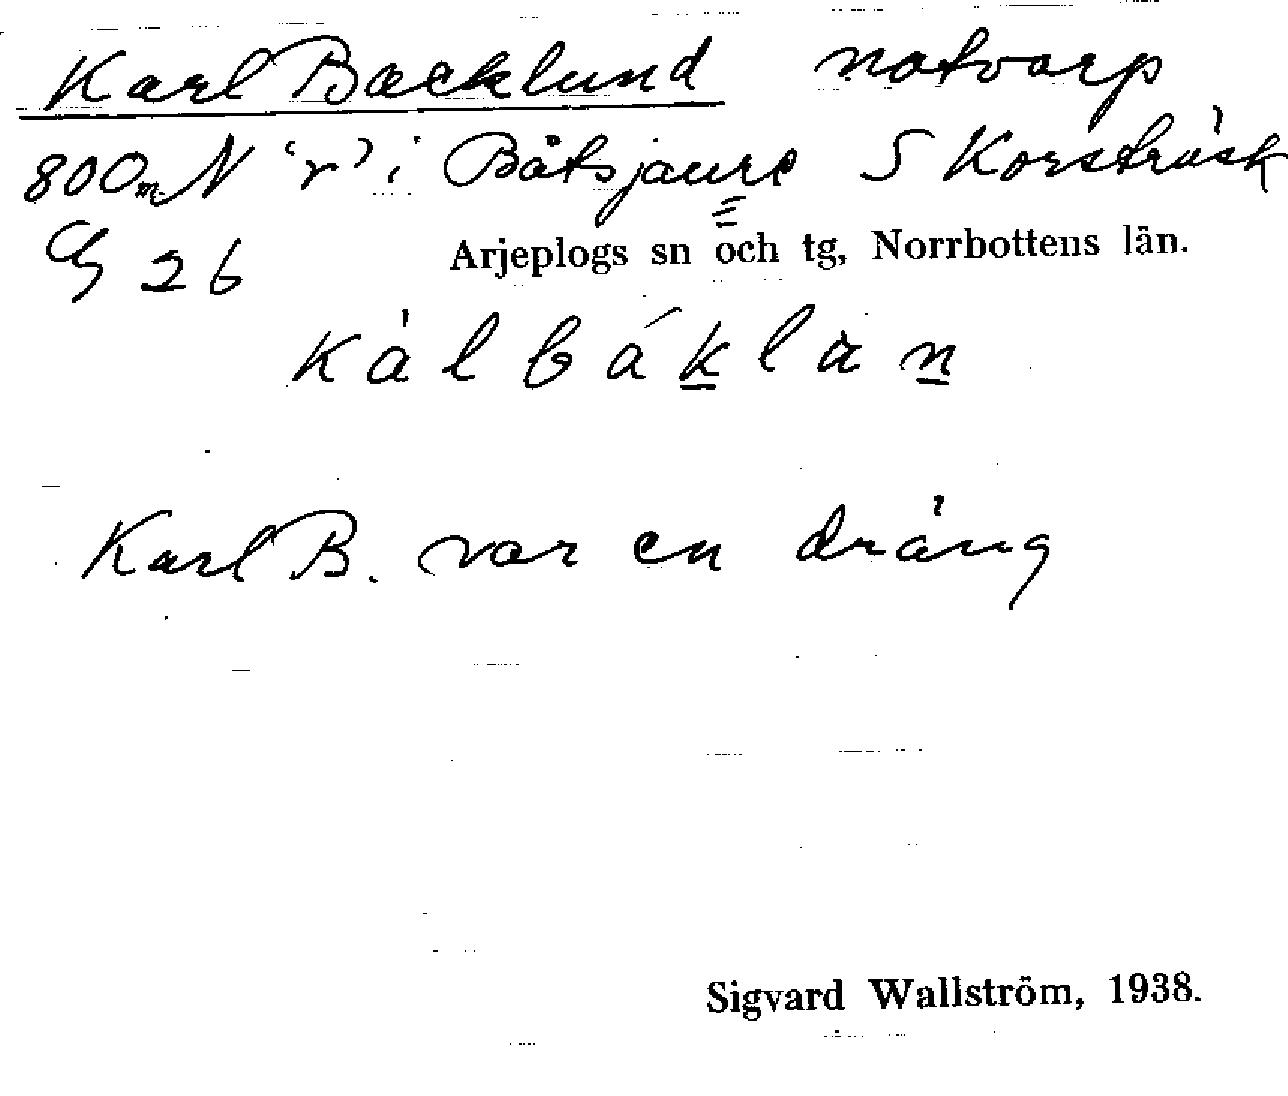 Karl Backlund notvarp
800m N 'r' i Båtsjaure S Korsträsk
G 26 Arjeplogs sn och tg, Norrbottens län.
Kálbákla̓n
Karl B. var en dräng
Sigvard Wallström, 1938.